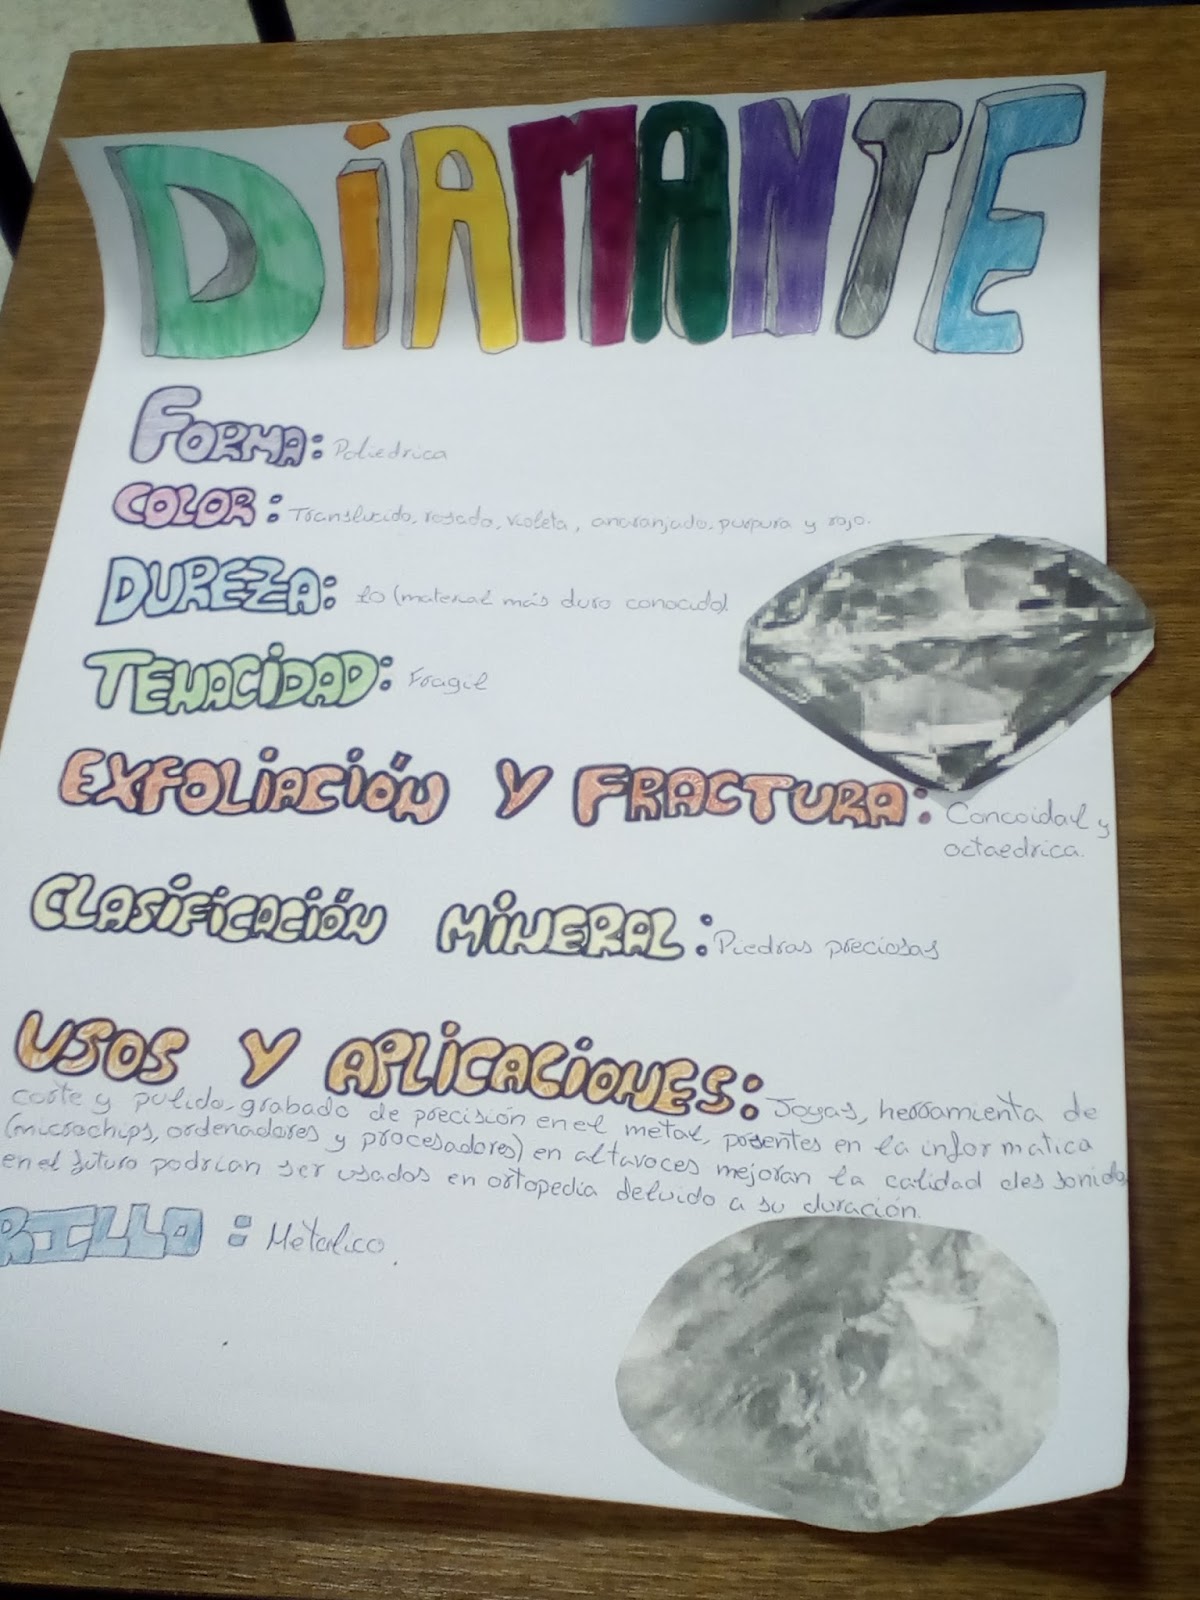 DIAMANTE
FORMA: Poliedrica
COLOR: Translucido, rosado, violeta, anaranjado, purpura y rojo.
DUREZA: 10 (material más duro conocido)
TENACIDAD: Fragil
EXFOLIACIÓN Y FRACTURA: Concoidal y
octaedrica.
CLASIFICACIÓN MINERAL: Piedras preciosas
USOS Y APLICACIONES: Joyas, herramienta de
corte y pulido, grabado de precisión en el metal, presentes en la informatica
(microchips, ordenadores y procesadores) en altavoces mejoran la calidad des sonido,
en el futuro podrian ser usados en ortopedia devido a su duración.
RILLO: Metalico.